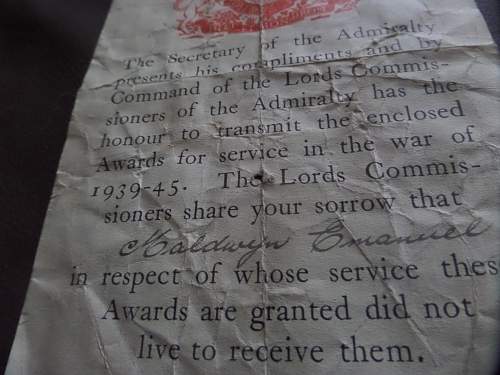 The Secretary of the Admiralty
presents his compliments and by
Command of the Lords Commis-
sioners of the Admiralty has the
honour to transmit the enclosed
Awards for service in the war of
1939-45. The Lords Commis-
sioners share your sorrow that
Maldwyn Emanuel
in respect of whose service thes
Awards are granted did not
live to receive them.